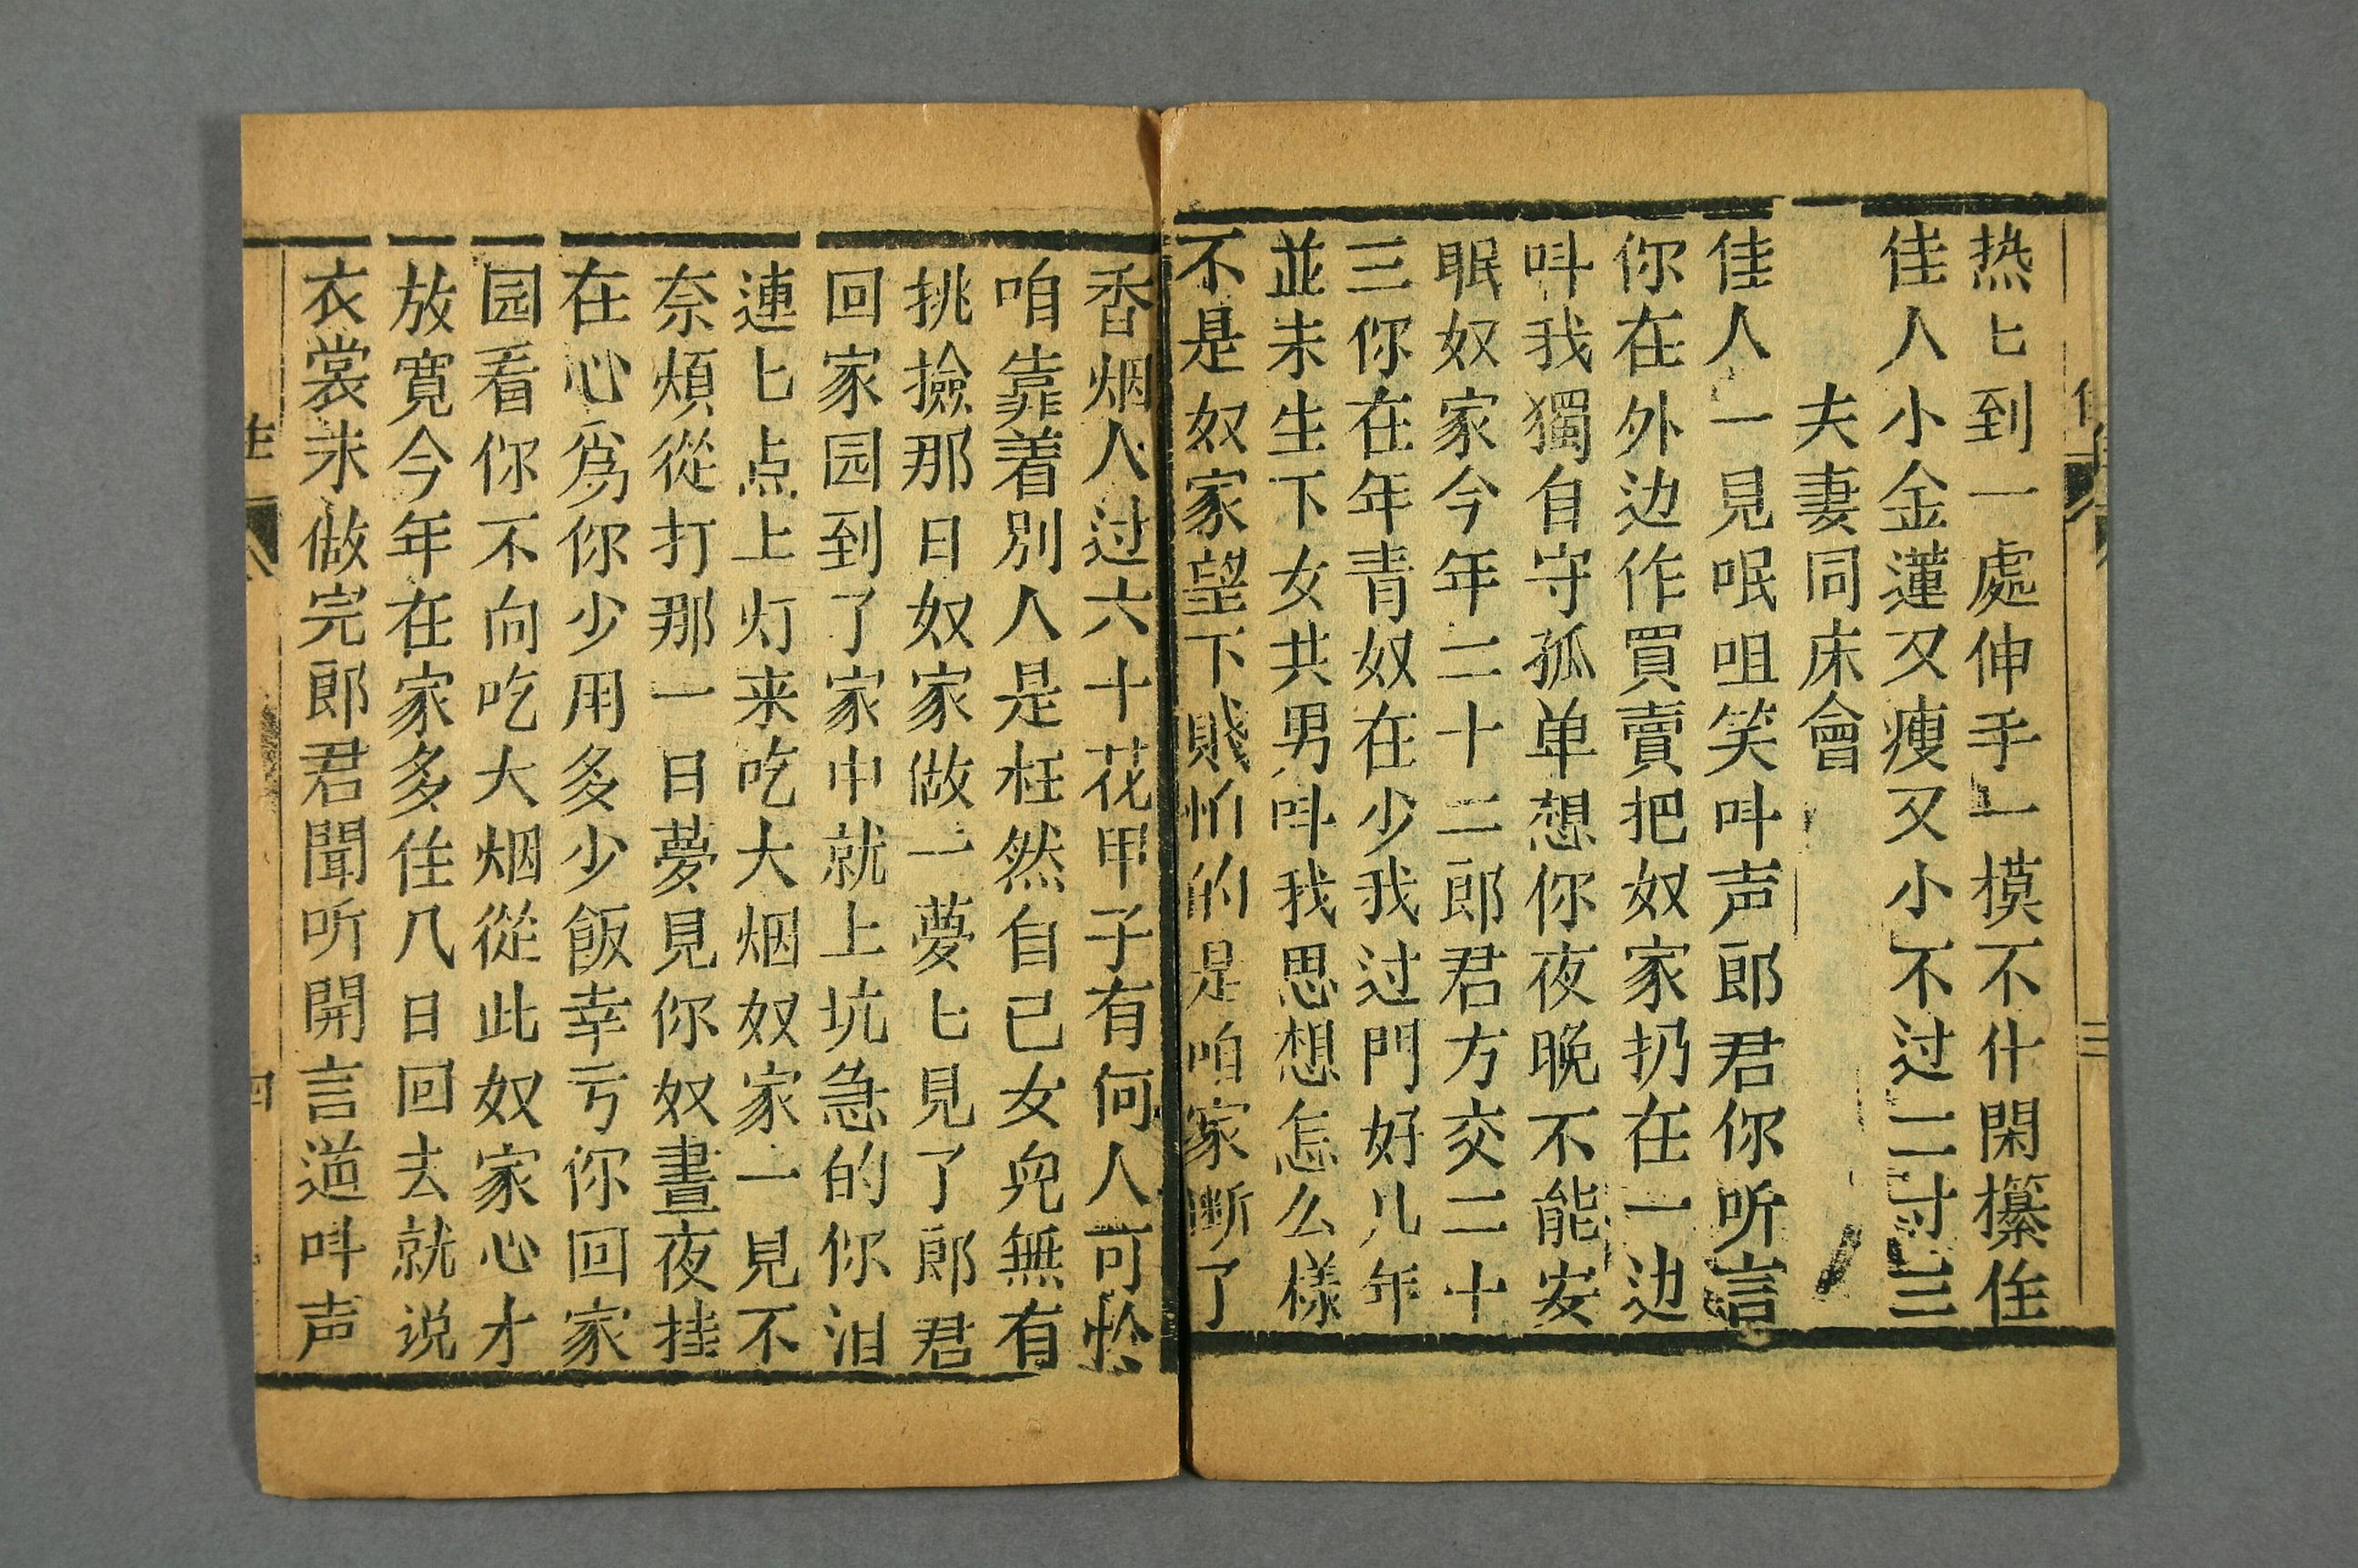 热匕到一處伸手一摸不什閑攥住
佳人小金蓮又瘦又小不过二寸三
夫妻同床會
佳人一見呡咀笑呌声郎君你听言
你在外边作買賣把奴家扔在一边
呌我獨自守孤单想你夜晚不能安
眠奴家今年二十二郎君方交二十
三你在年青奴在少我过門好几年
並未生下女共男呌我思想怎么樣
不是奴家望下賤怕的是咱家断了
香烟人过六十花甲子有何人可怜
咱靠着別人是枉然自己女兒無有
挑撿那日奴家做一夢匕見了郎君
回家园到了家中就上坑急的你泪
連匕点上灯来吃大烟奴家一見不
奈煩從打那一日夢見你奴晝夜挂
在心為你少用多少飯幸亏你回家
园看你不向吃大烟從此奴家心才
放寬今年在家多住几日回去就说
衣裳未做完郎君聞听開言道呌声